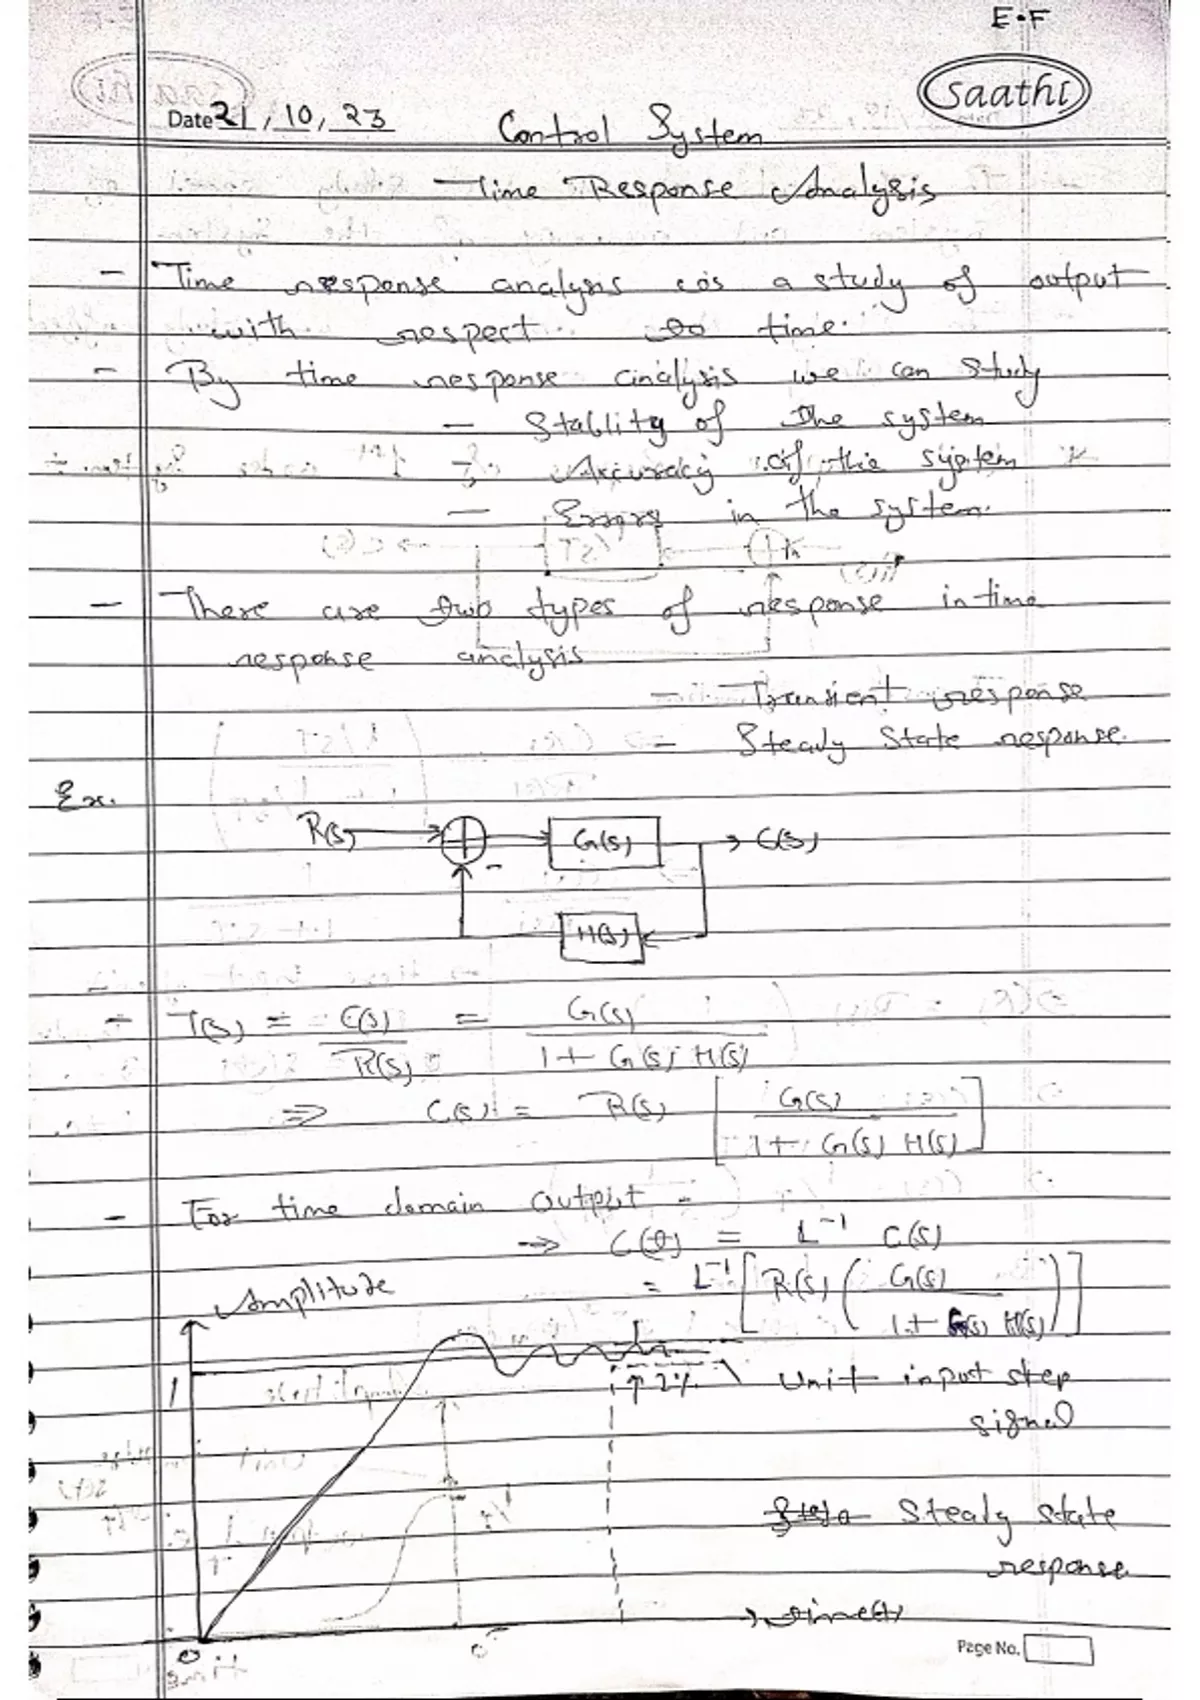 E.F
saathi
Date 21, 10, 23
Control System
Time Response Analysis
- Time response analysis is a study of output
with respect to time.
- By time response analysis we can study
- Stablity of the system
- Accuracy of the system
- Errors in the system.
- There are two types of response in time
response analysis
- Transient response
- Steady State response.
Ex.
R(s) → G(s) → C(s)
-
H(s)
- T(s) = C(s)/R(s) = G(s)/1 + G(s) H(s)
⇒ C(s) = R(s) [G(s)/1 + G(s) H(s)]
- For time domain output -
→ C(t) = L⁻¹ C(s)
= L⁻¹ [R(s) (G(s)/1 + G(s) H(s))]
Amplitude
1
↑2%
Unit input step
signal
Steady state
response
0
→ time(t)
Page No.